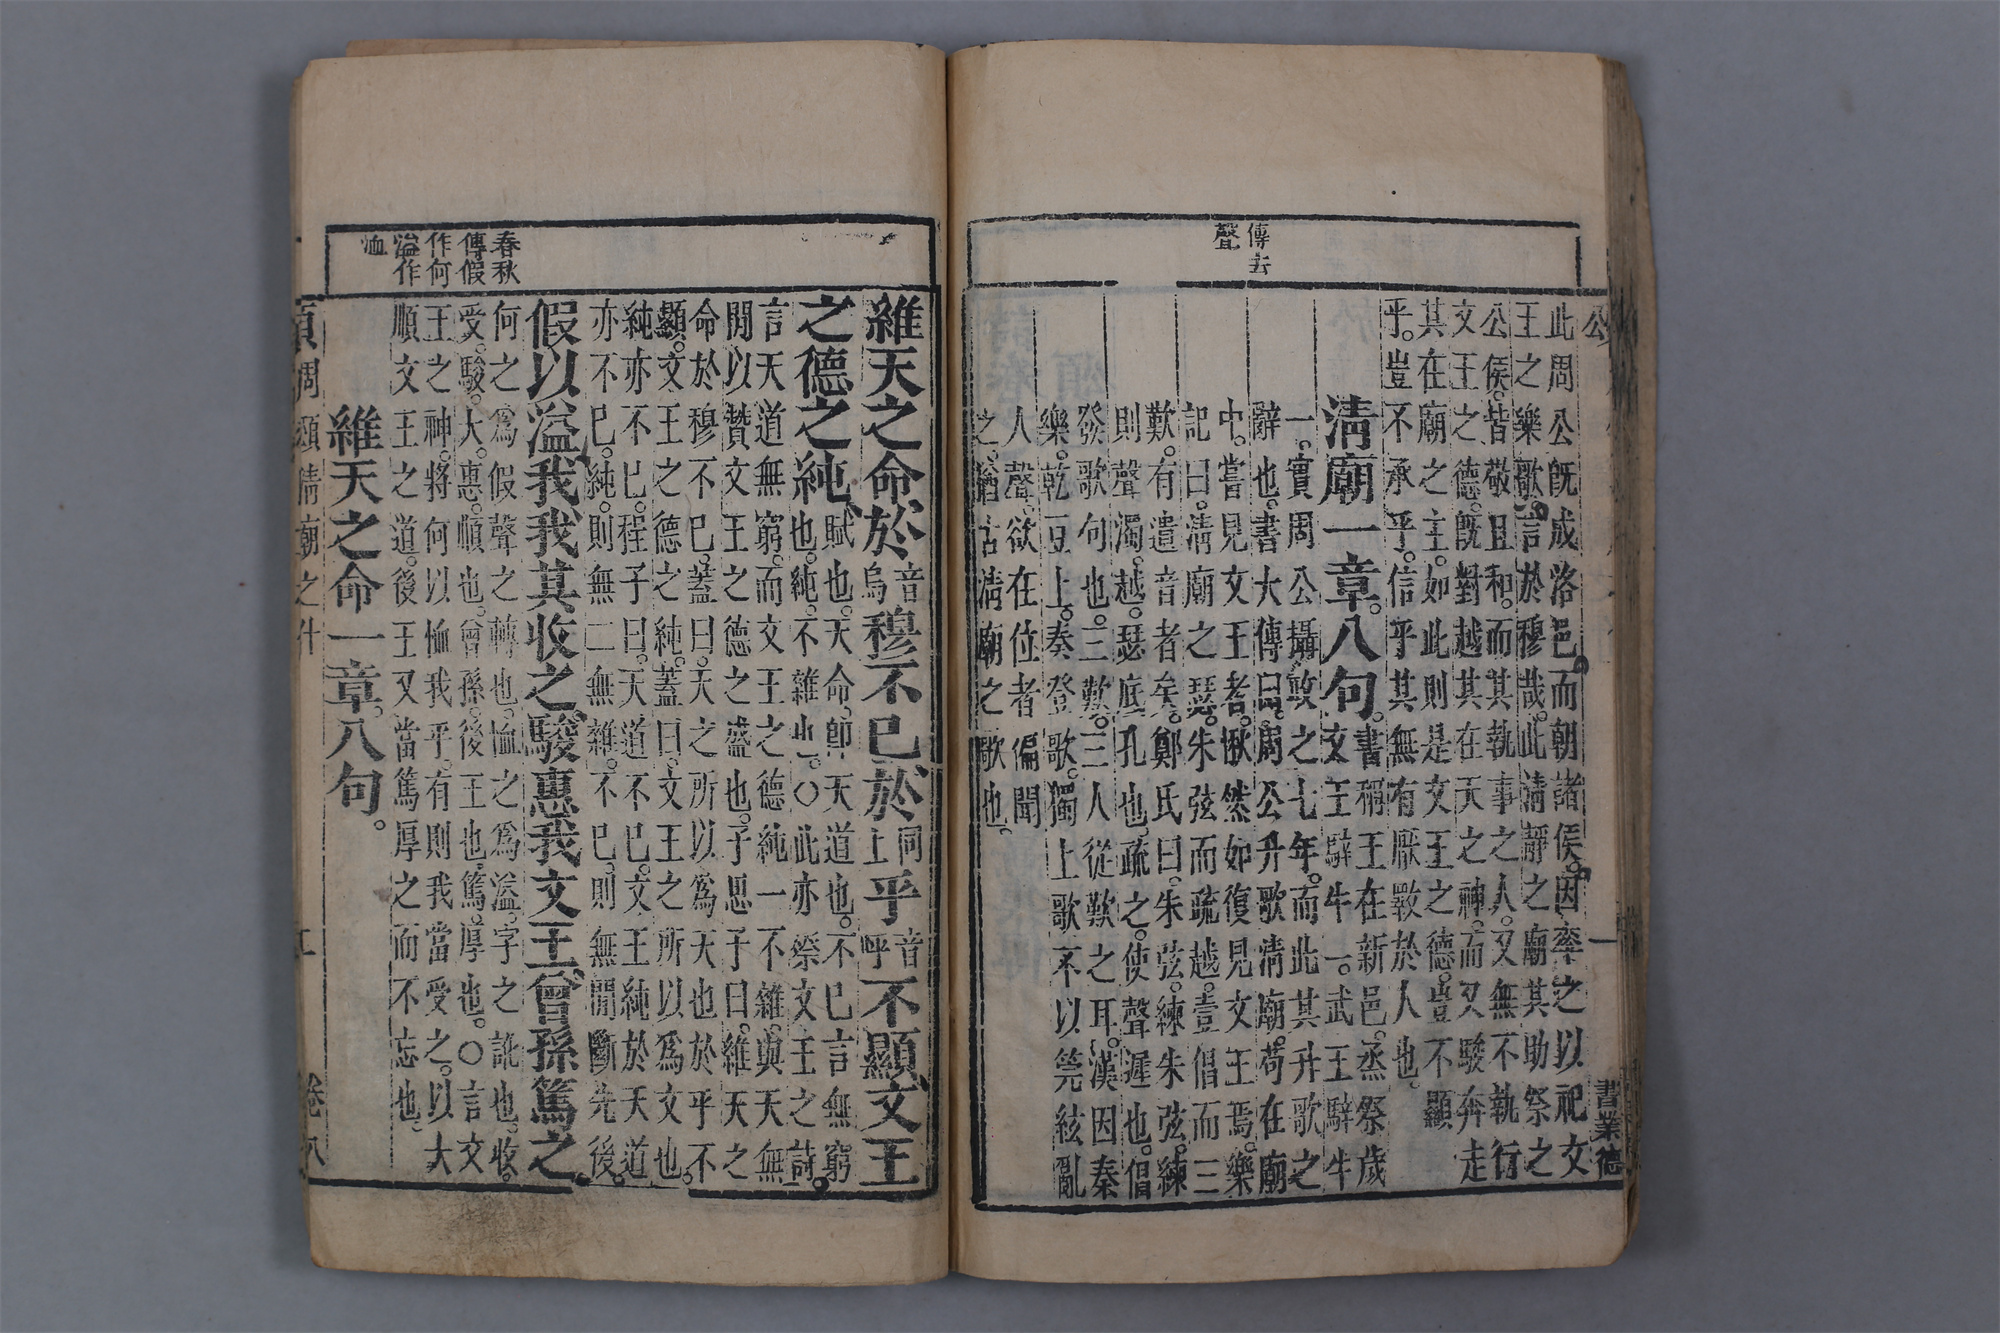 傳去
聲
此周公旣成洛邑。而朝諸侯。因率之以祀文
王之樂歌。言於穆哉。此淸靜之廟其助祭之
公侯。皆敬且和。而其執事之人。又無不執行
文王之德。旣對越其在天之神。而又駿奔走
其在廟之主。如此則是文王之德。豈不顯
乎。豈不承乎。信乎其無有厭斁於人也。
淸廟一章。八句。
書稱王在新邑。烝祭歲
文王騂牛一。武王騂牛
一。實周公攝政之七年。而此其升歌之
辭也。書大傳曰。周公升歌淸廟。苟在廟
中。嘗見文王者。愀然如復見文王焉。樂
記曰。淸廟之瑟。朱弦而疏越。壹倡而三
歎。有遺音者矣。鄭氏曰。朱弦。練朱弦。練
則聲濁。越。瑟底孔也。疏之。使聲遲也。倡
發歌句也。三歎。三人從歎之耳。漢因秦
樂。乾豆上。奏登歌。獨上歌不以筦絃亂
人聲。欲在位者徧聞
之。猶古淸廟之歌也。
書業德
春秋
傳假
作何
溢作
恤
維天之命、於音烏穆不已、於同上乎音呼不顯、文王
之德之純、
賦也。天命。卽天道也。不已言無窮
也。純。不雜也。○此亦祭文王之詩。
言天道無窮。而文王之德純一不雜。與天無
閒以贊文王之德之盛也。子思子曰。維天之
命於穆不已。蓋曰。天之所以爲天也於乎不
顯。文王之德之純。蓋曰。文王之所以爲文也。
純亦不已。程子曰。天道不已。文王純於天道
亦不已。純。則無二無雜。不已。則無閒斷先後。
假以溢我、我其收之、駿惠我文王、曾孫篤之、
何之爲假聲之轉也。恤之爲溢。字之訛也。收。
受。駿。大。惠。順也。曾孫。後王也。篤。厚也。○言文
王之神。將何以恤我乎。有則我當受之。以大
順文王之道。後王又當篤厚之而不忘也。
維天之命一章。八句。
周頌淸廟之什
卷八